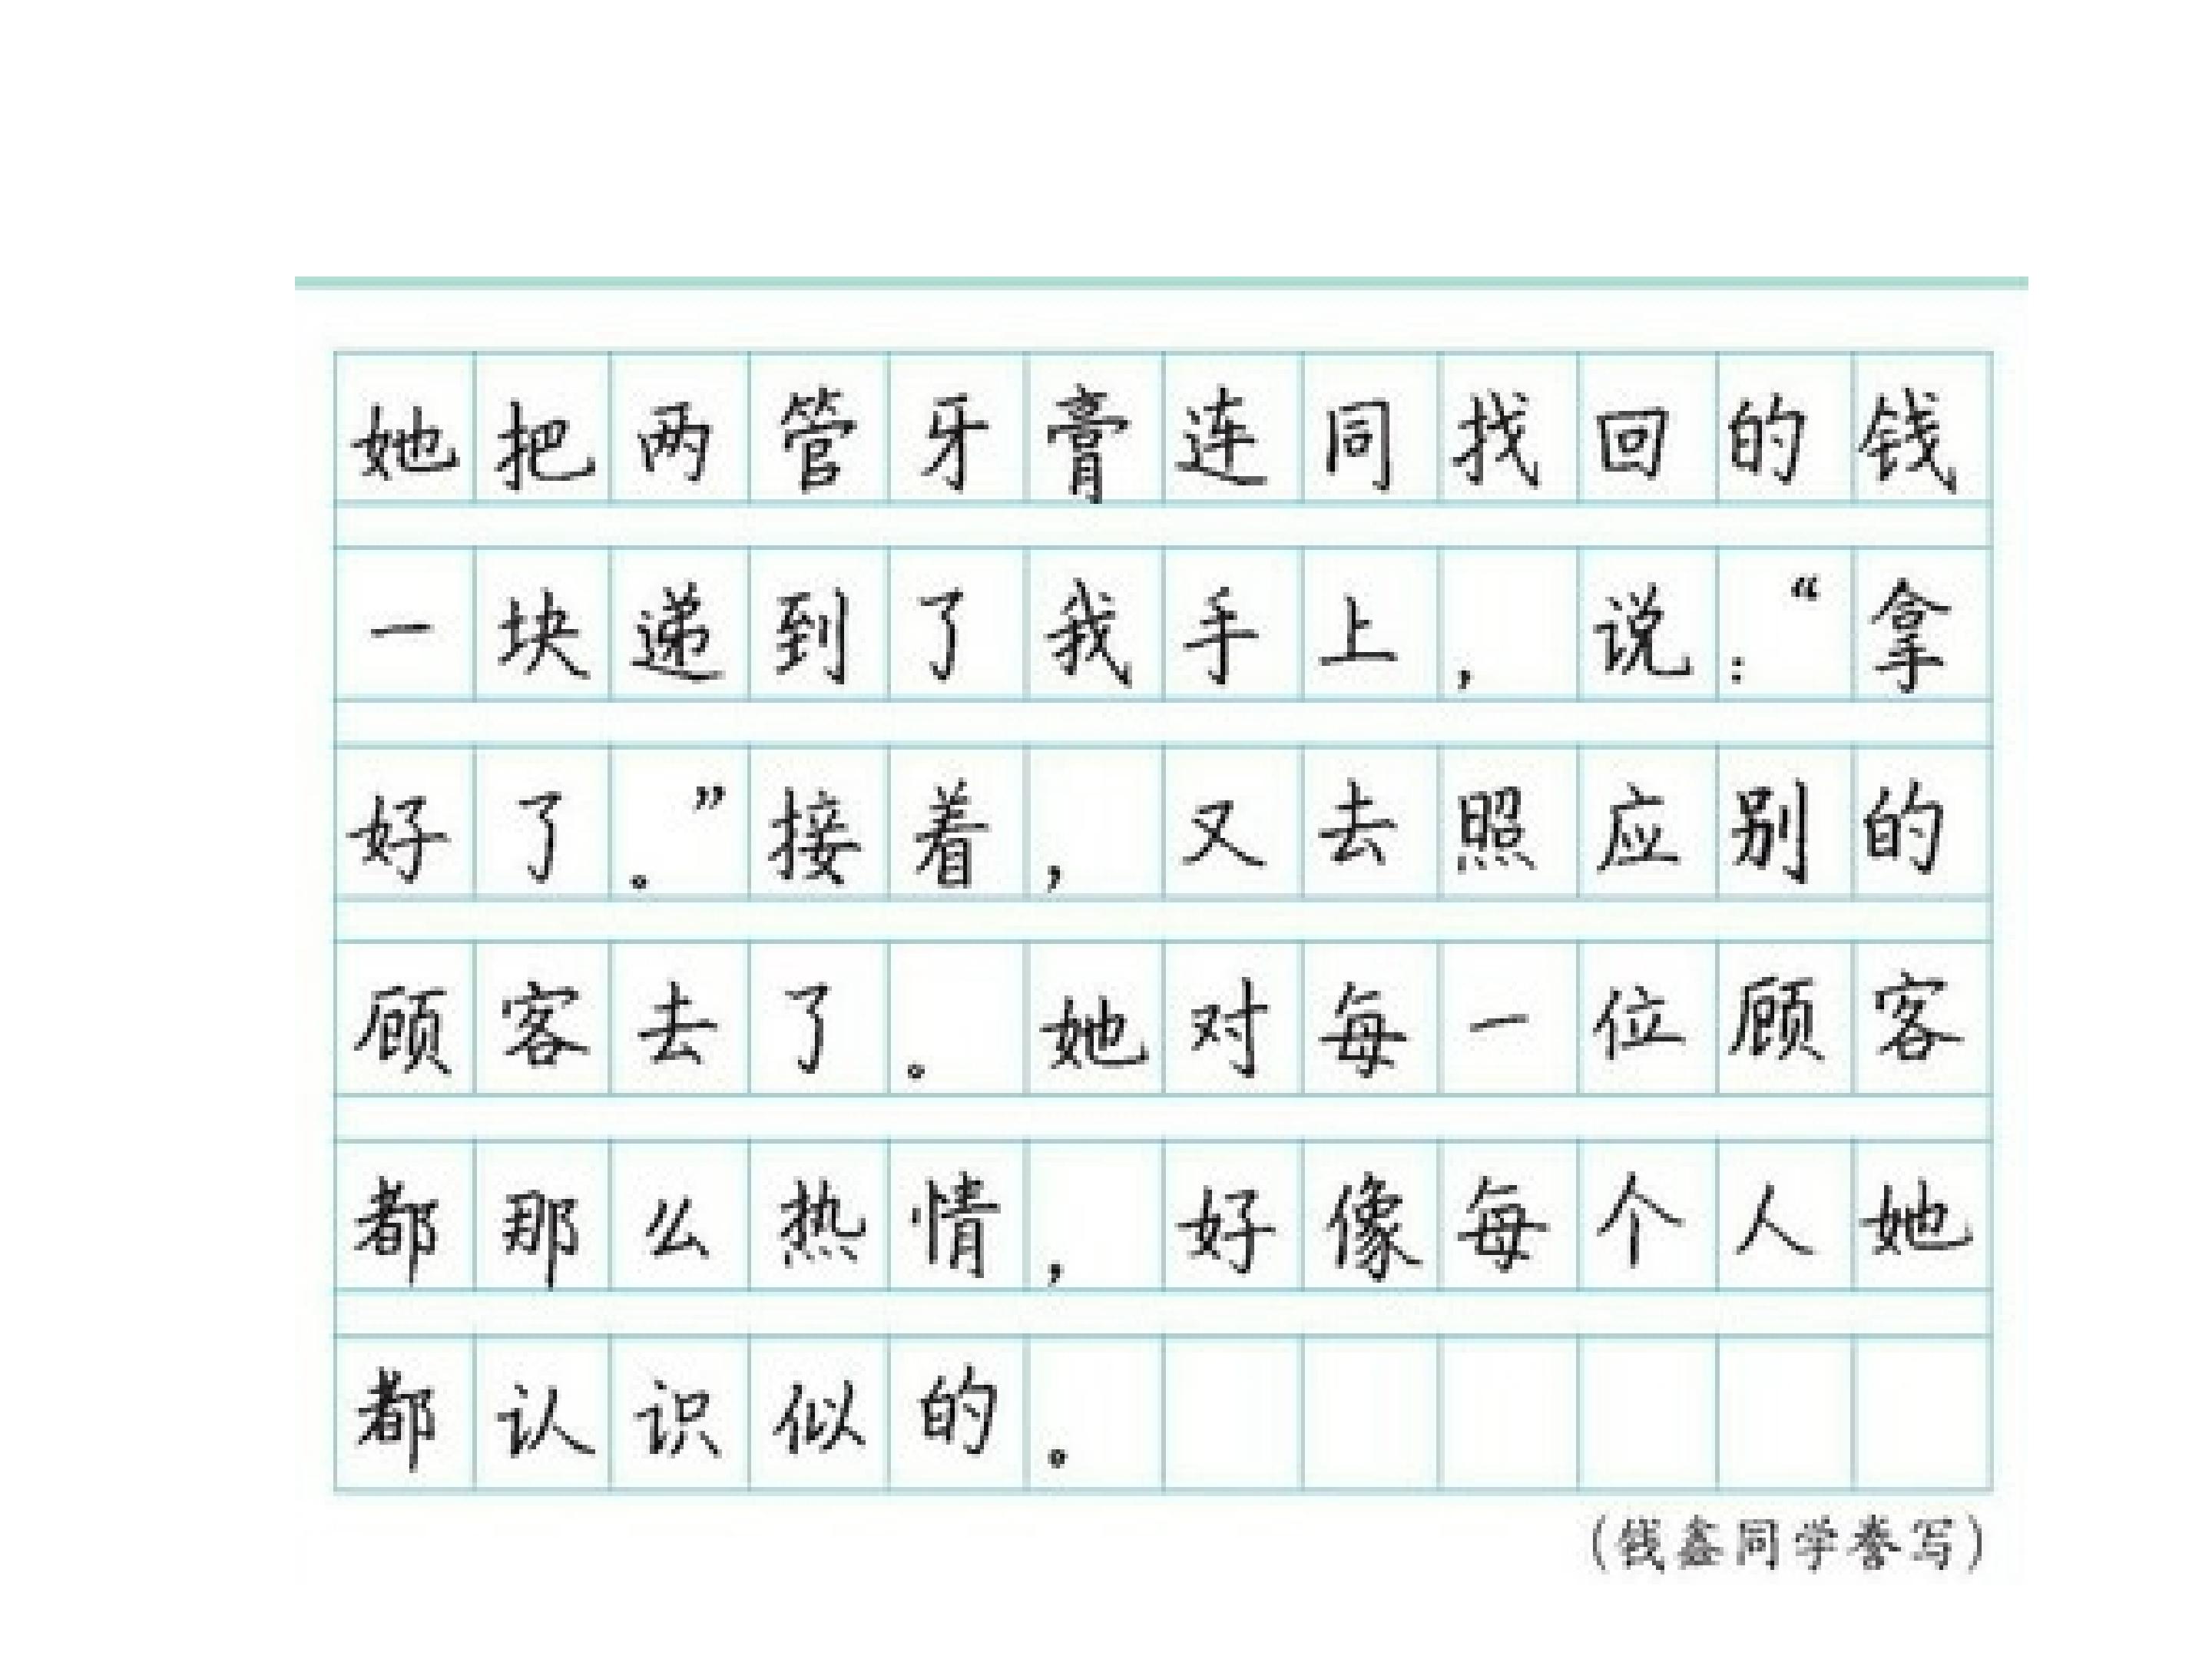 她把两管牙膏连同找回的钱
一块递到了我手上，说：“拿
好了。”接着，又去照应别的
顾客去了。她对每一位顾客
都那么热情，好像每个人她
都认识似的。
（钱鑫同学誊写）